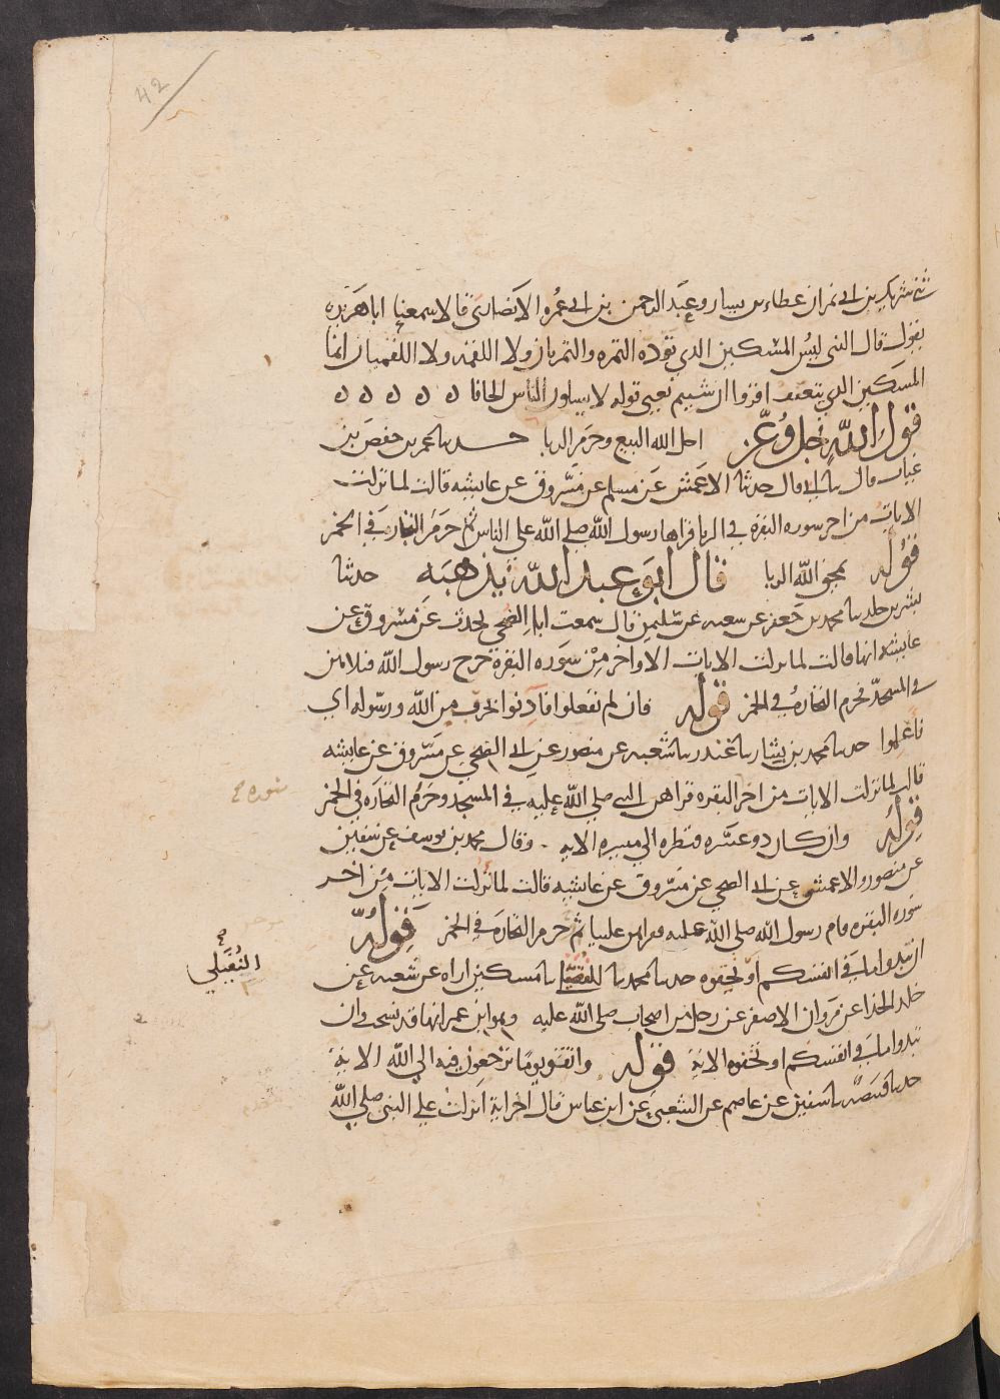 42
ثني شريك بن ابي نمر ان عطاء بن يسار وعبد الرحمن بن ابي عمره الانصاري قالا سمعنا ابا هريره
يقول قال النبي ليس المسكين الذي تؤده التمره والتمرتان ولا اللقمه ولا اللقمتان انما
المسكين الذي يتعفف اقروا ان شيتم يعني قوله لا يسلون الناس الحافا ه ه ه ه ه
قول الله جل وعز احل الله البيع وحرم الربا حدثنا عمر بن حفص بن
غياث قال نا ابي قال حدثنا الاعمش عن مسلم عن مسروق عن عايشه قالت لما نزلت
الايات من اخر سوره البقره في الربا قراها رسول الله صلى الله على الناس ثم حرم التجاره في الخمر
قوله يمحق الله الربا قال ابو عبد الله يذهبه حدثنا
بشر بن خلد نا محمد بن جعفر عن شعبه عن سليمن قال سمعت ابا الضحى يحدث عن مسروق عن
عايشه انها قالت لما نزلت الايات الاواخر من سوره البقره خرج رسول الله فتلاهن
في المسجد فحرم التجاره في الخمر قوله فان لم تفعلوا فاذنوا بحرب من الله ورسوله اي
فاعلموا حدثنا محمد بن بشار نا غندر نا شعبه عن منصور عن ابي الضحى عن مسروق عن عايشه
قالت لما نزلت الايات من اخر البقره قراهن النبي صلى الله عليه في المسجد وحرم التجاره في الخمر
قوله وان كان ذو عسره فنظره الى ميسره الايه . وقال محمد بن يوسف عن سفين
عن منصور والاعمش عن ابي الضحى عن مسروق عن عايشه قالت لما نزلت الايات من اخر
سوره البقره قام رسول الله صلى الله عليه فقراهن علينا ثم حرم التجاره في الخمر قوله
ان تبدوا ما في انفسكم او تخفوه حدثنا محمد نا النفيلي نا مسكين اراه عن شعبه عن
النفيلي
خلد الحذا عن مروان الاصفر عن رجل من اصحاب صلى الله عليه وهو ابن عمر انها قد نسخت وان
تبدوا ما في انفسكم او تخفوه الايه قوله واتقوا يوما ترجعون فيه الى الله الايه
حدثنا قبيصه نا سفين عن عاصم عن الشعبي عن ابن عباس قال اخر ايه انزلت على النبي صلى الله